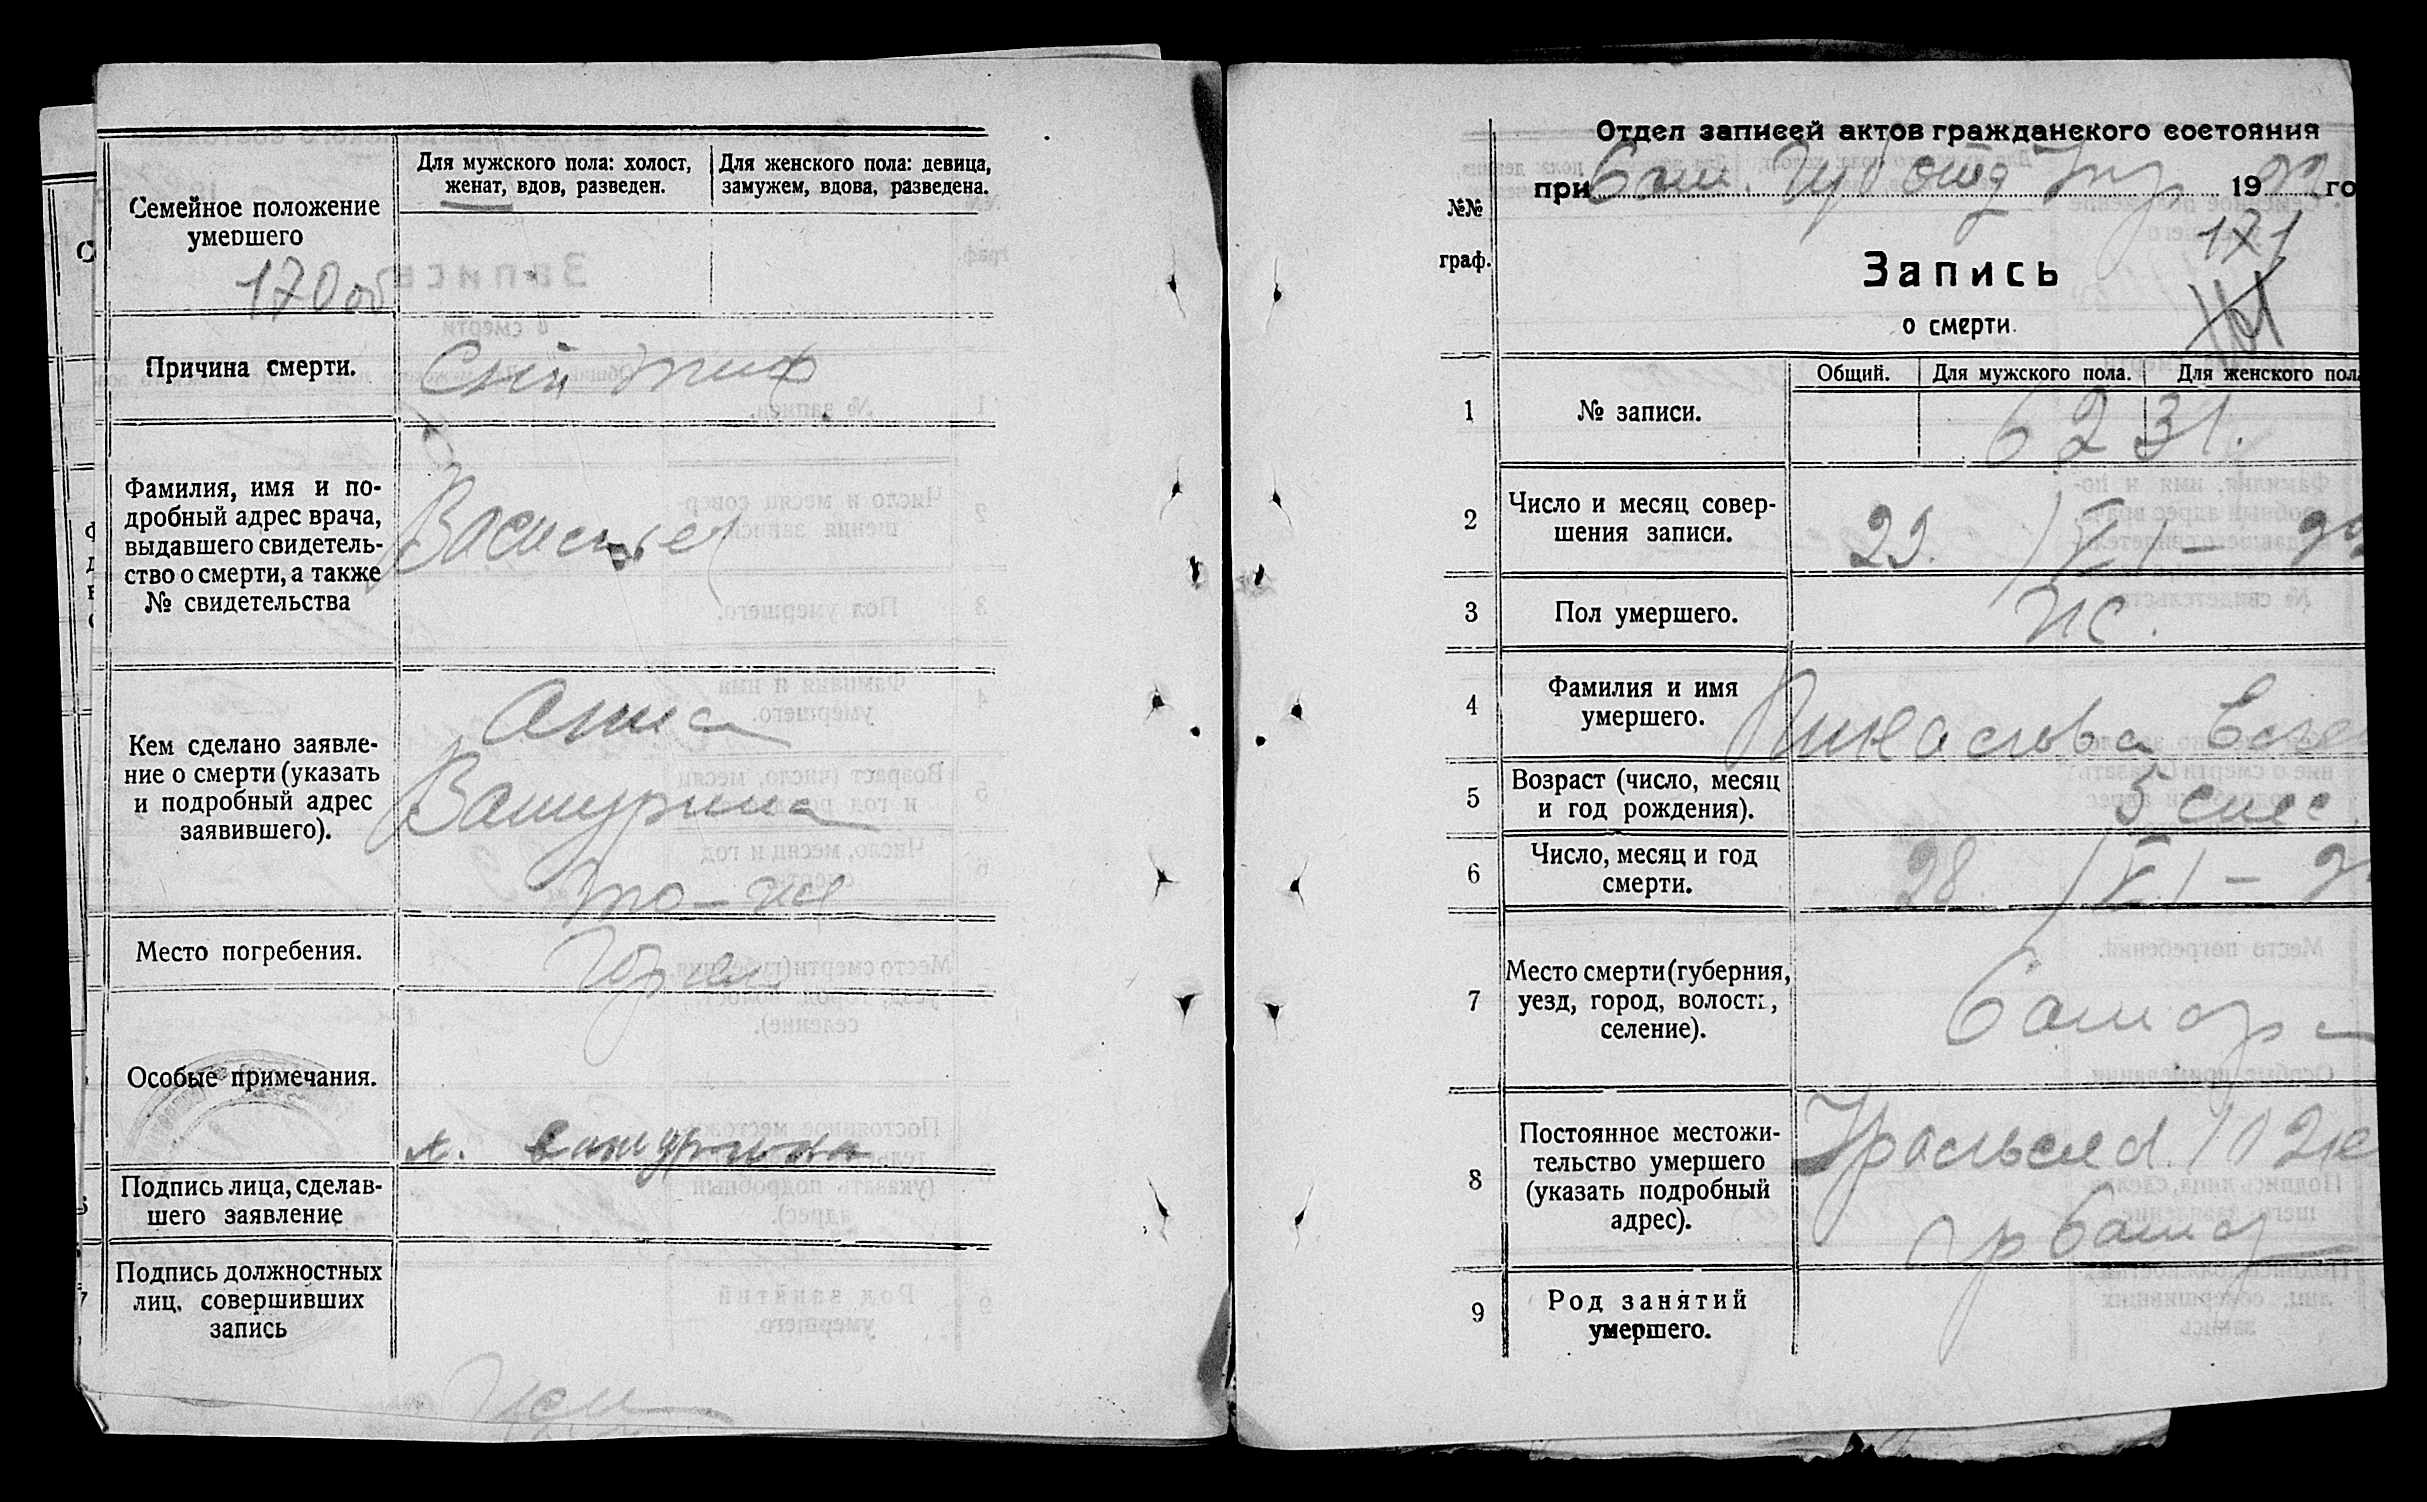 Семейное положение
умершего
Для мужского пола: холост,
женат, вдов, разведен.
Для женского пола: девица,
замужем, вдова, разведена.
170 об
Причина смерти.
Сып тиф
Фамилия, имя и по-
дробный адрес врача,
выдавшего свидетель-
ство о смерти, а также
№ свидетельства
Васильев
Кем сделано заявле-
ние о смерти (указать
и подробный адрес
заявившего).
Анна
Вашурина
то-же
Место погребения.
Особые примечания.
А. Вашурина
Подпись лица, сделав-
шего заявление
Подпись должностных
лиц, совершивших
запись
Отдел записей актов гражданского состояния
при Сам. Губ 19 22 го
№№
граф.
171
Запись
о смерти.
Общий.
Для мужского пола.
Для женского пола
1
№ записи.
6231.
2
Число и месяц совер-
шения записи.
29. / VI - 22
3
Пол умершего.
ж.
4
Фамилия и имя
умершего.
5
Возраст (число, месяц
и год рождения).
3 мес
6
Число, месяц и год
смерти.
28 / VI - 2
7
Место смерти (губерния,
уезд, город, волость,
селение).
Самара
8
Постоянное местожи-
тельство умершего
(указать подробный
адрес).
Уральская 102
гр Самар
9
Род занятий
умершего.